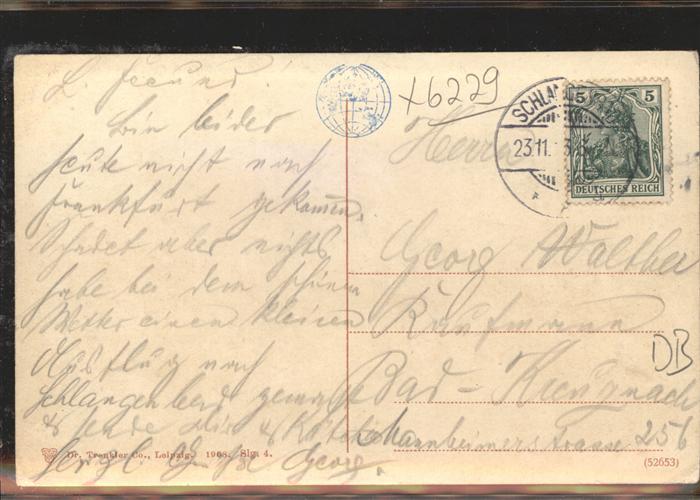 L. Freund!
Bin leider
heute nicht nach
Frankfurt gekommen.
Schadet aber nichts
habe bei dem schönen
Wetter einen kleinen
Ausflug nach
Schlangenbad gemacht
& sende Dir &
herzl. Grüße Georg.
Dr. Trenkler Co., Leipzig. 1908. Slg. 4.
x6229
SCHLAN
23.11.
5 5
DEUTSCHES REICH
Herrn
Georg Walther
Kaufmann
Bad-Kreuznach
Mannheimerstrasse 256
DB
(52653)